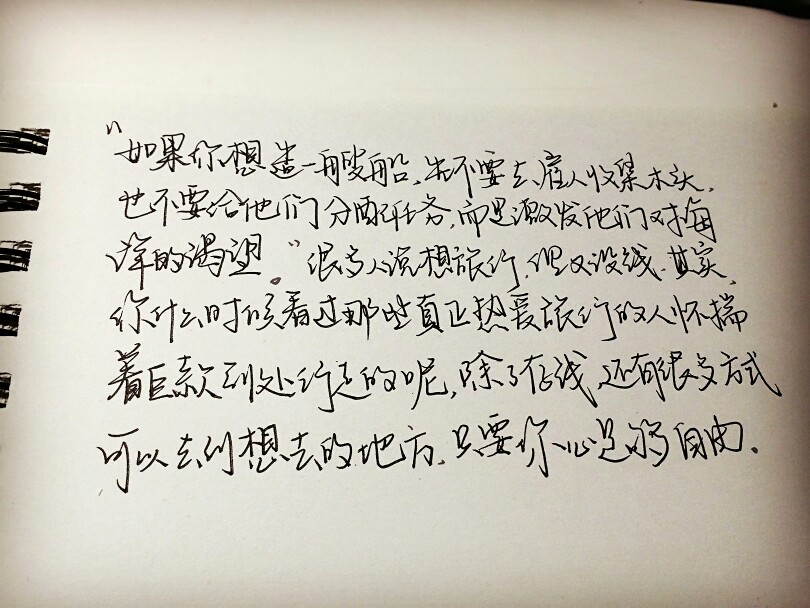 “如果你想造一艘船,先不要去雇人收集木头,
也不要给他们分配任务,而是激发他们对海
洋的渴望。”很多人说想旅行,但又没钱.其实,
你什么时候看过那些真正热爱旅行的人怀揣
着巨款到处行走的呢,除了存钱,还有很多方式
可以去到想去的地方.只要你心足够自由.